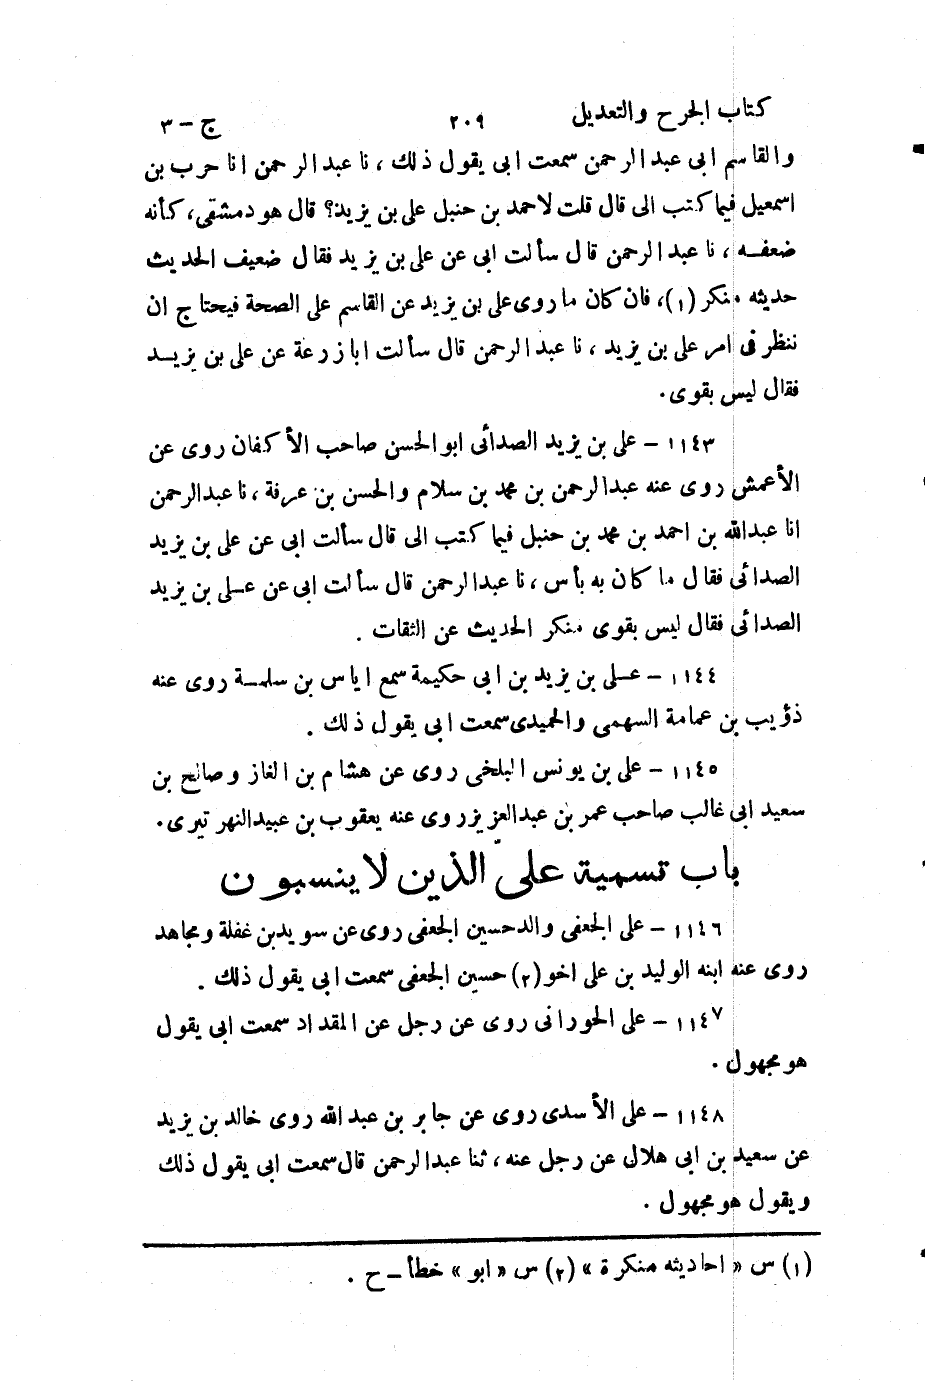 كتاب الجرح والتعديل ٢٠٩ ج – ٣
والقاسم ابى عبد الرحمن سمعت ابى يقول ذلك ، نا عبد الرحمن انا حرب بن
اسمعيل فيما كتب الى قال قلت لاحمد بن حنبل على بن يزيد؟ قال هو دمشقى، كأنه
ضعفه ، نا عبد الرحمن قال سألت ابى عن على بن يزيد فقال ضعيف الحديث
حديثه منكر (١)، فان كان ما روى على بن يزيد عن القاسم على الصحة فيحتاج ان
ننظر فى امر على بن يزيد ، نا عبد الرحمن قال سألت ابا زرعة عن على بن يزيد
فقال ليس بقوى.
١١٤٣ – على بن يزيد الصدائى ابو الحسن صاحب الأكفان روى عن
الأعمش روى عنه عبد الرحمن بن محمد بن سلام والحسن بن عرفة ، نا عبد الرحمن
انا عبد الله بن احمد بن محمد بن حنبل فيما كتب الى قال سألت ابى عن على بن يزيد
الصدائى فقال ما كان به بأس ، نا عبد الرحمن قال سألت ابى عن على بن يزيد
الصدائى فقال ليس بقوى منكر الحديث عن الثقات .
١١٤٤ – على بن يزيد بن ابى حكيمة سمع اياس بن سلمة روى عنه
ذؤيب بن عمامة السهمى والحميدى سمعت ابى يقول ذلك .
١١٤٥ – على بن يونس البلخى روى عن هشام بن الغاز وصالح بن
سعيد ابى غالب صاحب عمر بن عبد العزيز روى عنه يعقوب بن عبيد النهر تيرى.
باب تسمية على الذين لا ينسبون
١١٤٦ – على الجعفى والد حسين الجعفى روى عن سويد بن غفلة ومجاهد
روى عنه ابنه الوليد بن على اخو (٢) حسين الجعفى سمعت ابى يقول ذلك .
١١٤٧ – على الحورانى روى عن رجل عن المقداد سمعت ابى يقول
هو مجهول .
١١٤٨ – على الأسدى روى عن جابر بن عبد الله روى خالد بن يزيد
عن سعيد بن ابى هلال عن رجل عنه ، ثنا عبد الرحمن قال سمعت ابى يقول ذلك
ويقول هو مجهول .
(١) س « احاديثه منكرة » (٢) س « ابو » خطأ – ح .